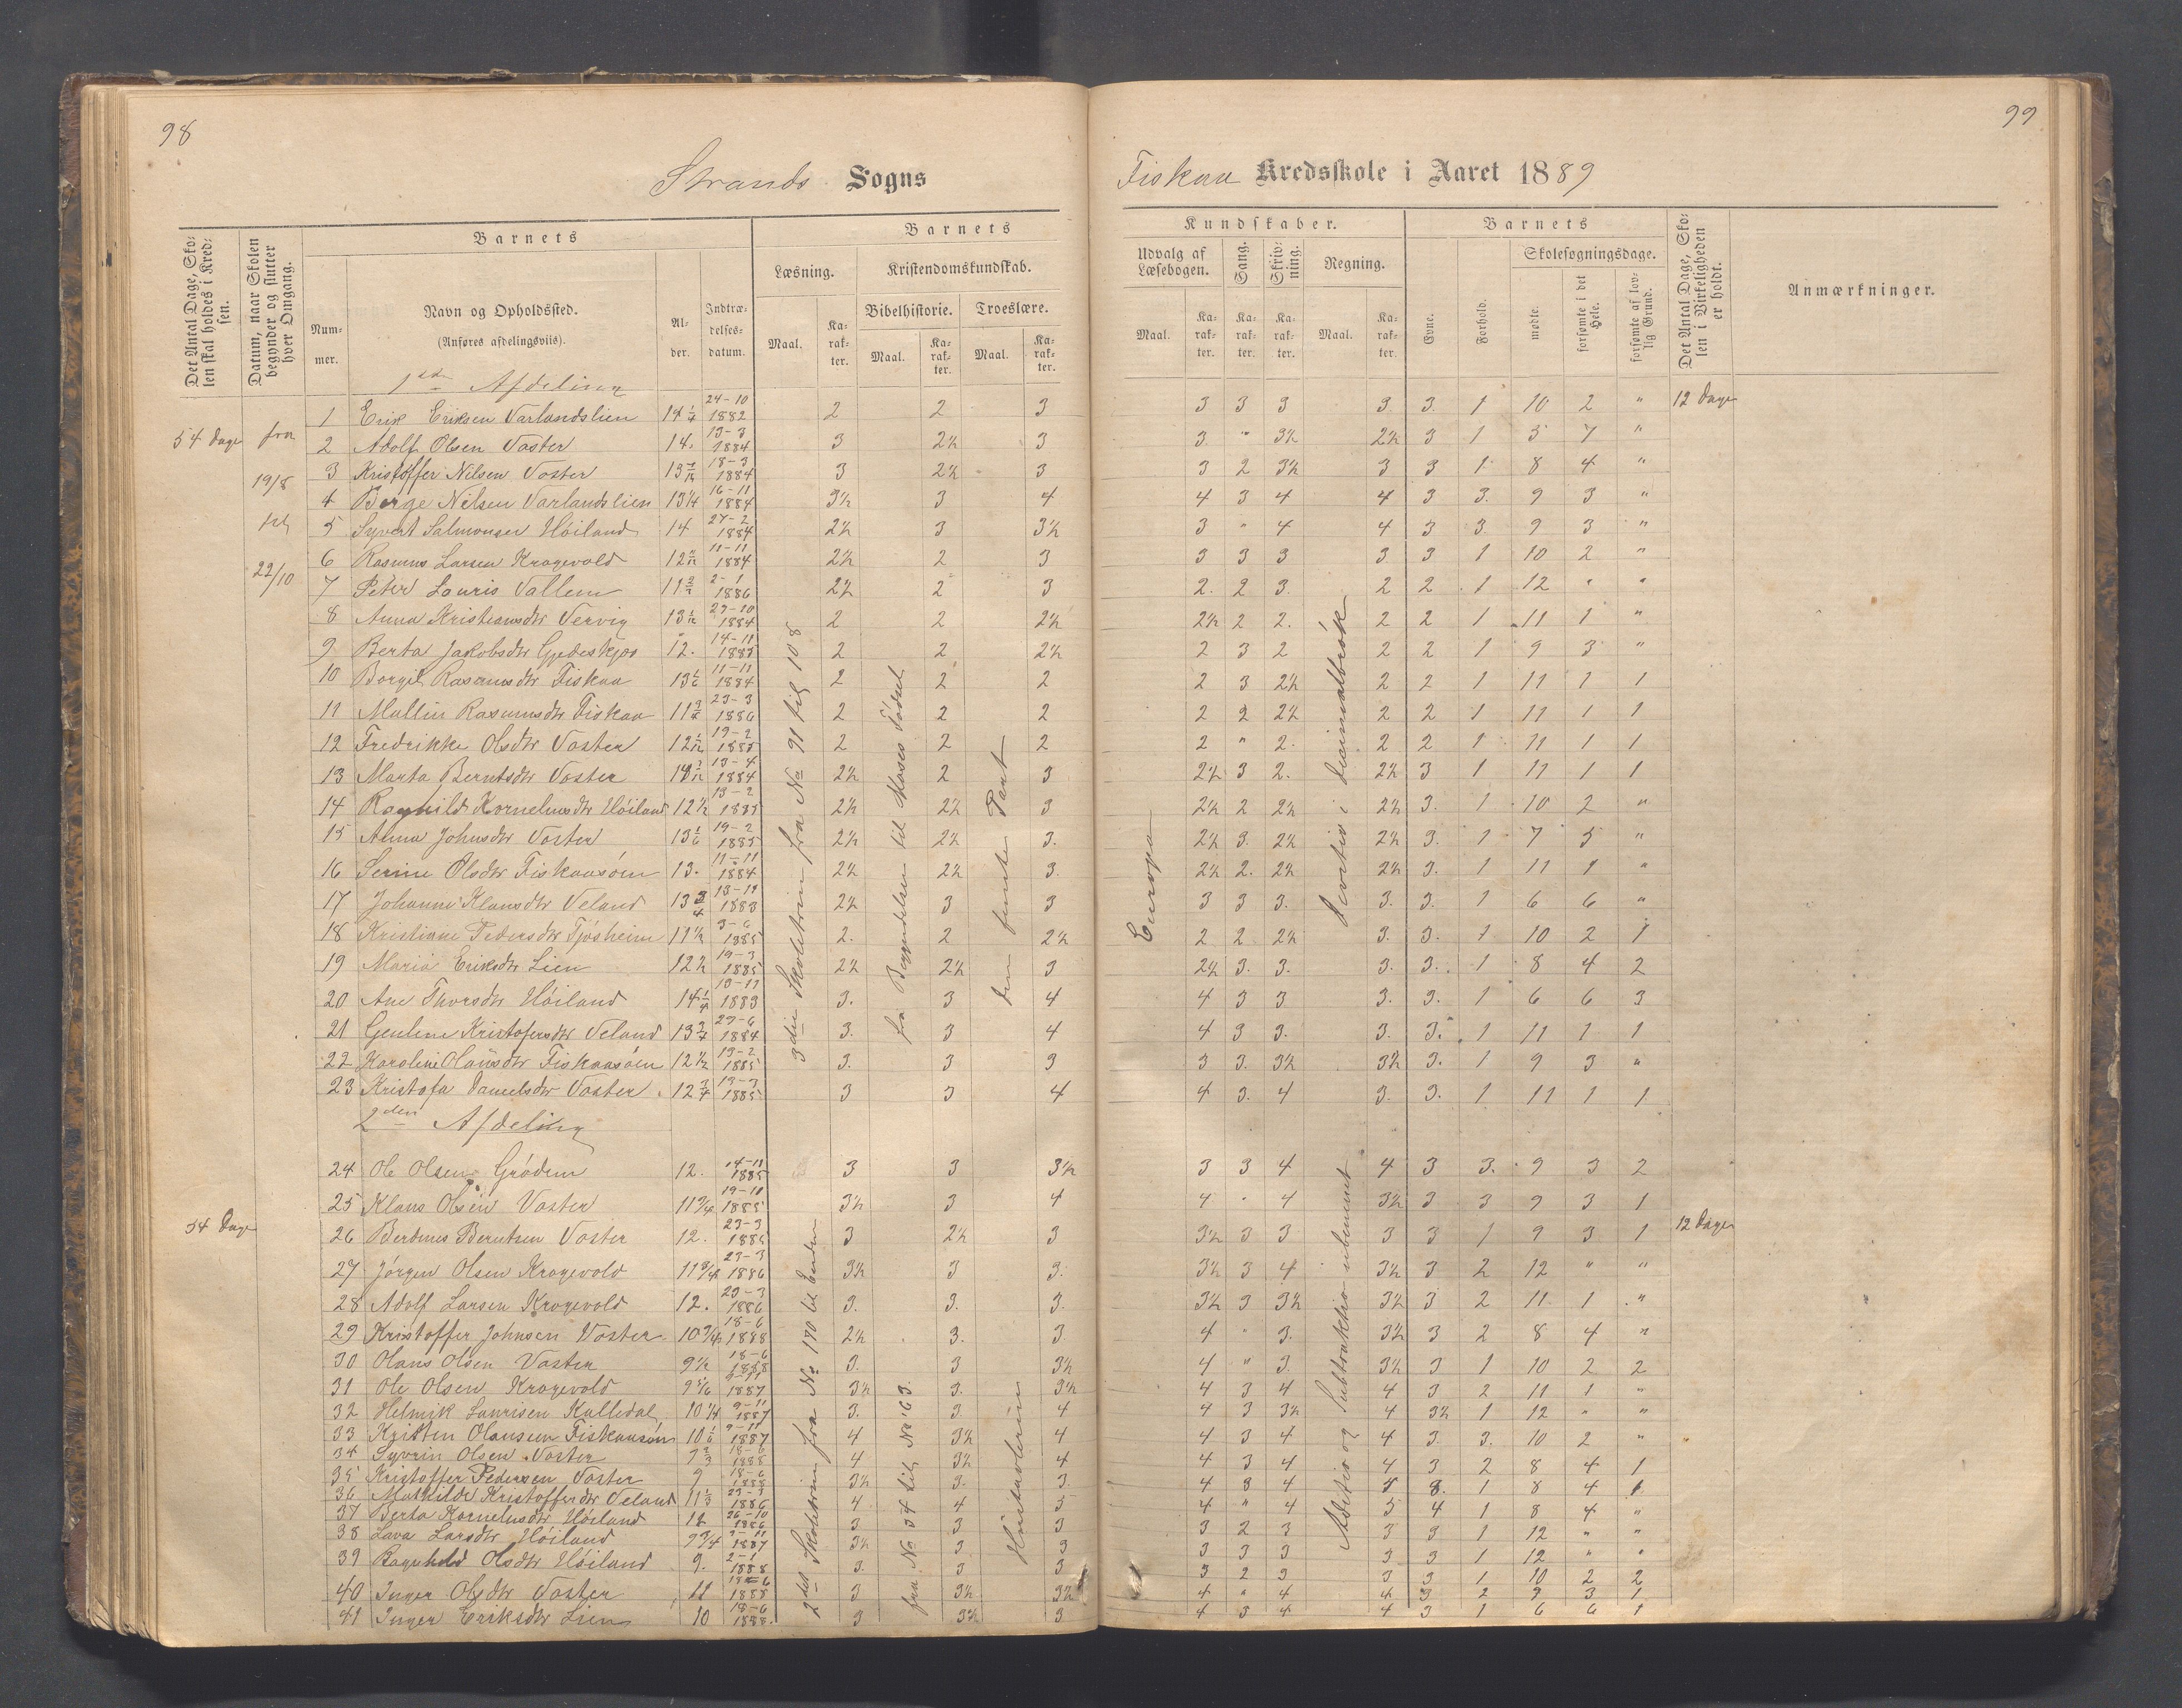 98
99
Strands Sogns
Fiskaa Kredsskole i Aaret 1889
Det Antal Dage, Skolen skal holdes i Kredsen.
Datum, naar Skolen begynder og slutter hver Omgang.
Barnets
Nummer.
Navn og Opholdssted.
(Anføres afdelingsviis).
Alder.
Indtrædelsesdatum.
Barnets
Læsning.
Kristendomskundskab.
Bibelhistorie.
Troeslære.
Maal.
Karakter.
Maal.
Karakter.
Maal.
Karakter.
Kundskaber.
Udvalg af Læsebogen.
Sang.
Skrivning.
Regning.
Maal.
Karakter.
Karakter.
Karakter.
Maal.
Karakter.
Barnets
Evne.
Forhold.
Skolesøgningsdage.
mødte.
forsømte i det Hele.
forsømte af lovlig Grund.
Det Antal Dage, Skolen i Virkeligheden er holdt.
Anmærkninger.
1ste Afdeling
54 Dage
fra
19/8
til
22/10
1 Erik Eriksen Varlandslien 14 1/4 24-10 1882 2 2 3 3 3 3 3. 3. 1 10 2 " 12 Dage
2 Adolf Olsen Voster 14. 13-3 1884 3 2½ 3 3. " 3½ 2½ 3 1 5 7 "
3 Kristoffer Nilsen Voster 18-3 1884 3 2½ 3 3 2 3½ 3 3 1 8 4 "
4 Børge Nilsen Varlandslien 13 1/4 16-11 1884 3½ 3 4 4 3 4 4 3 3. 9 3 "
5 Syvert Salmonsen Høiland 14 27-2 1884 2½ 3 3½ 3 " 4 4 3 3. 9 3 "
6 Rasmus Larsen Kragevold 11-11 1884 2½ 2 3 3 3 3 3. 3 1 10 2 "
7 Peter Lauris Vallem 2-1 1886 2½ 2 3 2. 2 3. 2 2 1 12 " "
8 Anna Kristiansdtr Vervig 23-10 1884 2 2 2½ 2½ 2 2. 2 2 1 11 1 "
9 Berta Jakobsdtr Gjedeskjos 12. 14-11 1885 2 2 2½ 2 3 2 2 2 1 9 3 "
10 Borgil Rasmusdtr Fiskaa 13 1/6 11-11 1884 2 2 2 2 3 2½ 2 2 1 11 1 1
11 Mallin Rasmusdtr Fiskaa 11 3/4 23-3 1886 2 2 2 2 2 2½ 2 2 1 11 1 1
12 Fredrikke Olsdtr Voster 19-2 1885 2 2 2 2 " 2. 2 2 1 11 1 1
13 Marta Berntsdtr Voster 13-4 1884 2½ 2 3 2½ 3 2. 2½ 3 1 11 1 1
14 Ragnild Kornelius dtr Høiland 12½ 13-2 1885 2½ 2½ 3 2½ 2 2½ 2½ 3. 1 10 2 "
15 Anna Johnsdtr Voster 13 1/6 19-2 1885 2½ 2½ 3. 2½ 3. 2½ 2½ 3. 1 7 5 "
16 Serine Olsdtr Fiskaasøen 13. 11-11 1884 2½ 2½ 3. 2½ 2. 2½ 2½ 3. 1 11 1 "
17 Johanne Klausdtr Veland 13 3/4 13-11 1883 2½ 3 3 3 3 3. 3. 3. 1 6 6 "
18 Kristiane Pedersdtr Tjøsheim 11½ 3-6 1885 2. 2 2½ 2 2 2½ 3. 3. 1 10 2 1
19 Maria Eriksdtr Lien 12½ 19-3 1885 2½ 2½ 3 2½ 3. 3. 3. 3. 1 8 4 2
20 Ane Thorsdtr Høiland 14 1/4 13-11 1883 3. 3 4 4 3 3 3. 3. 1 6 6 3
21 Gauline Kristofersdtr Veland 13 3/4 23-6 1884 3. 3 4 4 3 3. 3. 3. 1 11 1 1
22 Karoline Olausdtr Fiskaasøen 12½ 19-2 1885 3. 3 3 3 3. 3½ 3½ 3. 1 9 3 "
23 Kristofa Danielsdtr Voster 12 3/4 19-3 1885 3 3 4 4 3. 4 3. 3. 1 11 1 1
3die Skoletrin fra No 91 til 108
fra Begyndelsen til Moses Fødsel
den femte Part
Europa
Division i Decimalbrøk
2den Afdeling
24 Ole Olsen Grødem 12. 14-11 1885 3 3 3½ 3 3 4 4 3 3. 9 3 2
25 Klaus Olsen Voster 11 3/4 19-11 1885 3½ 3 4 4 " 4 3½ 3 3 9 3 1
54 Dage
26 Berdines Berntsen Voster 12. 23-3 1886 3 2½ 3 3½ 3 3 3 3 1 9 3 1 12 Dage
27 Jørgen Olsen Kragevold 11 3/4 23-3 1886 3½ 3 3. 3½ 3 4 3½ 3 2 12 " "
28 Adolf Larsen Kragevold 12. 23-3 1886 3. 3. 3. 3½ 3 3½ 3½ 3 2 11 1 "
29 Kristoffer Johnsen Voster 10 3/4 18-6 1888 2½ 3. 3. 4 " 3. 3½ 3 2 8 4 "
30 Olaus Olsen Voster 9½ 18-6 1888 3. 3 3½ 4 " 3. 3½ 3 1 10 2 2
31 Ole Olsen Kragevold 9 5/6 9-11 1887 3½ 3. 3½ 4 3 4 4 3 2 11 1 "
32 Helmik Laurisen Kalledal 10 1/4 9-11 1887 3. 3. 4 4 3 3½ 4 3½ 1 12 " "
33 Kristen Olausen Fiskaasøen 10 1/6 9-11 1887 4 3½ 4 4 3 4 4 3. 3. 10 2 "
34 Syvrin Olsen Voster 9 2/3 18-6 1888 4 3½ 4 4 3 4 4 3 2 8 4 1
35 Kristoffer Pedersen Voster 9 18-6 1888 3½ 3. 3. 4 3 4 5 3. 1 8 4 1
36 Mathilde Kristofferdtr Veland 11 1/3 23-3 1886 4 4 5 4 " 4 5 4 1 8 4 "
37 Berta Kornelusdtr Høiland 12 26-10 1886 3 3 3 3 2 3 3 3 1 12 " "
38 Lava Larsdtr Høiland 9 3/4 9-11 1887 3½ 3 3 3 3 3 3 3 1 12 " "
39 Ragnhild Olsdtr Høiland 9. 2-1 1888 3. 3 3 3 2 3 3 3 1 10 2 2
40 Inger Olsdtr Voster 11 18-6 1888 3 3½ 3½ 4 " 4 4 3 2 9 3 1
41 Inger Eriksdtr Lien 10 18-6 1888. 3 3½ 3 4 3 4 4 3 1 6 6 1
2det Skoletrin fra No 170 til Enden
fra No 34 til No 63.
Addition og Subtraktion ubenævnt